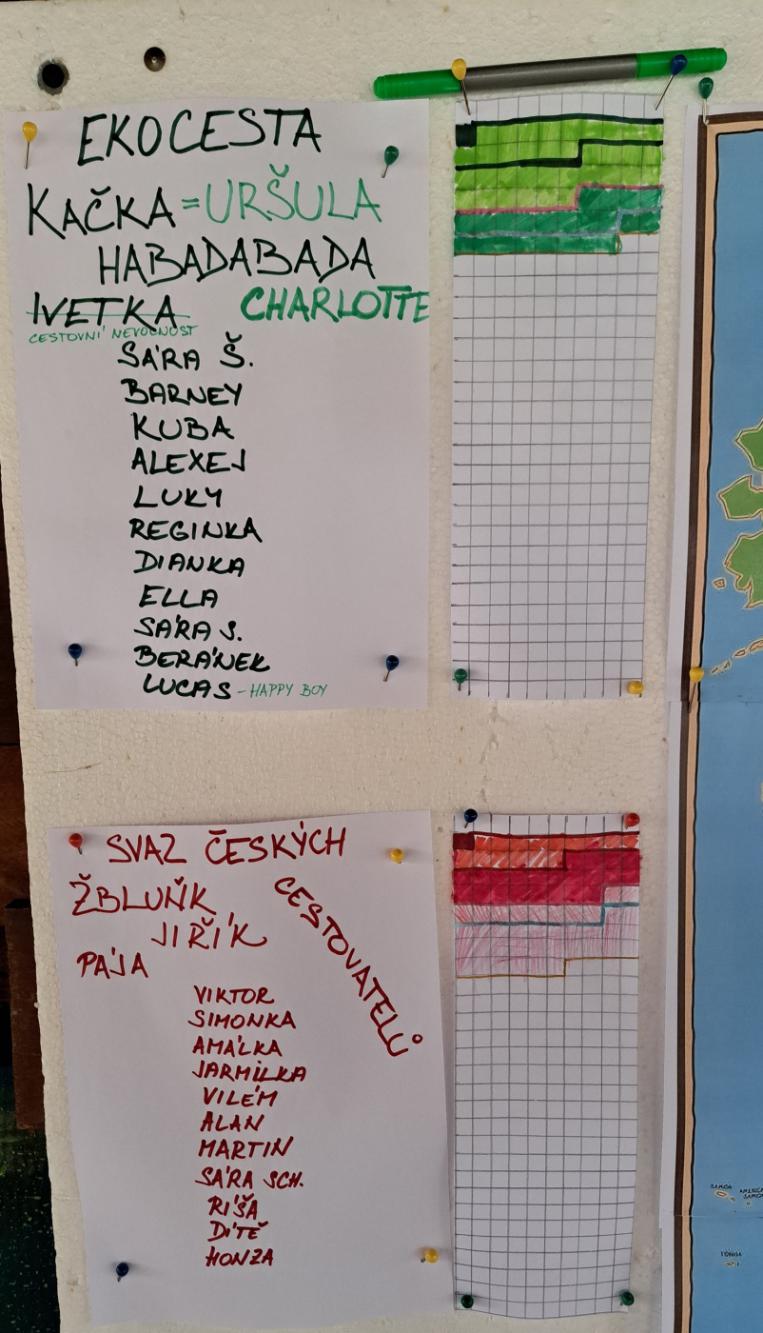 EKOCESTA
KAČKA = URŠULA
HABADABADA
IVETKA CHARLOTTE
CESTOVNÍ NEVOLNOST
SÁRA Š.
BARNEY
KUBA
ALEXEJ
LUKY
REGINKA
DIANKA
ELLA
SÁRA S.
BERÁNEK
LUCAS - HAPPY BOY
SVAZ ČESKÝCH
CESTOVATELŮ
ŽBLUŇK
JIŘÍK
PÁJA
VIKTOR
SIMONKA
AMÁLKA
JARMILKA
VILÉM
ALAN
MARTIN
SÁRA SCH.
RÍŠA
DÍTĚ
HONZA
SAMOA
TONGA